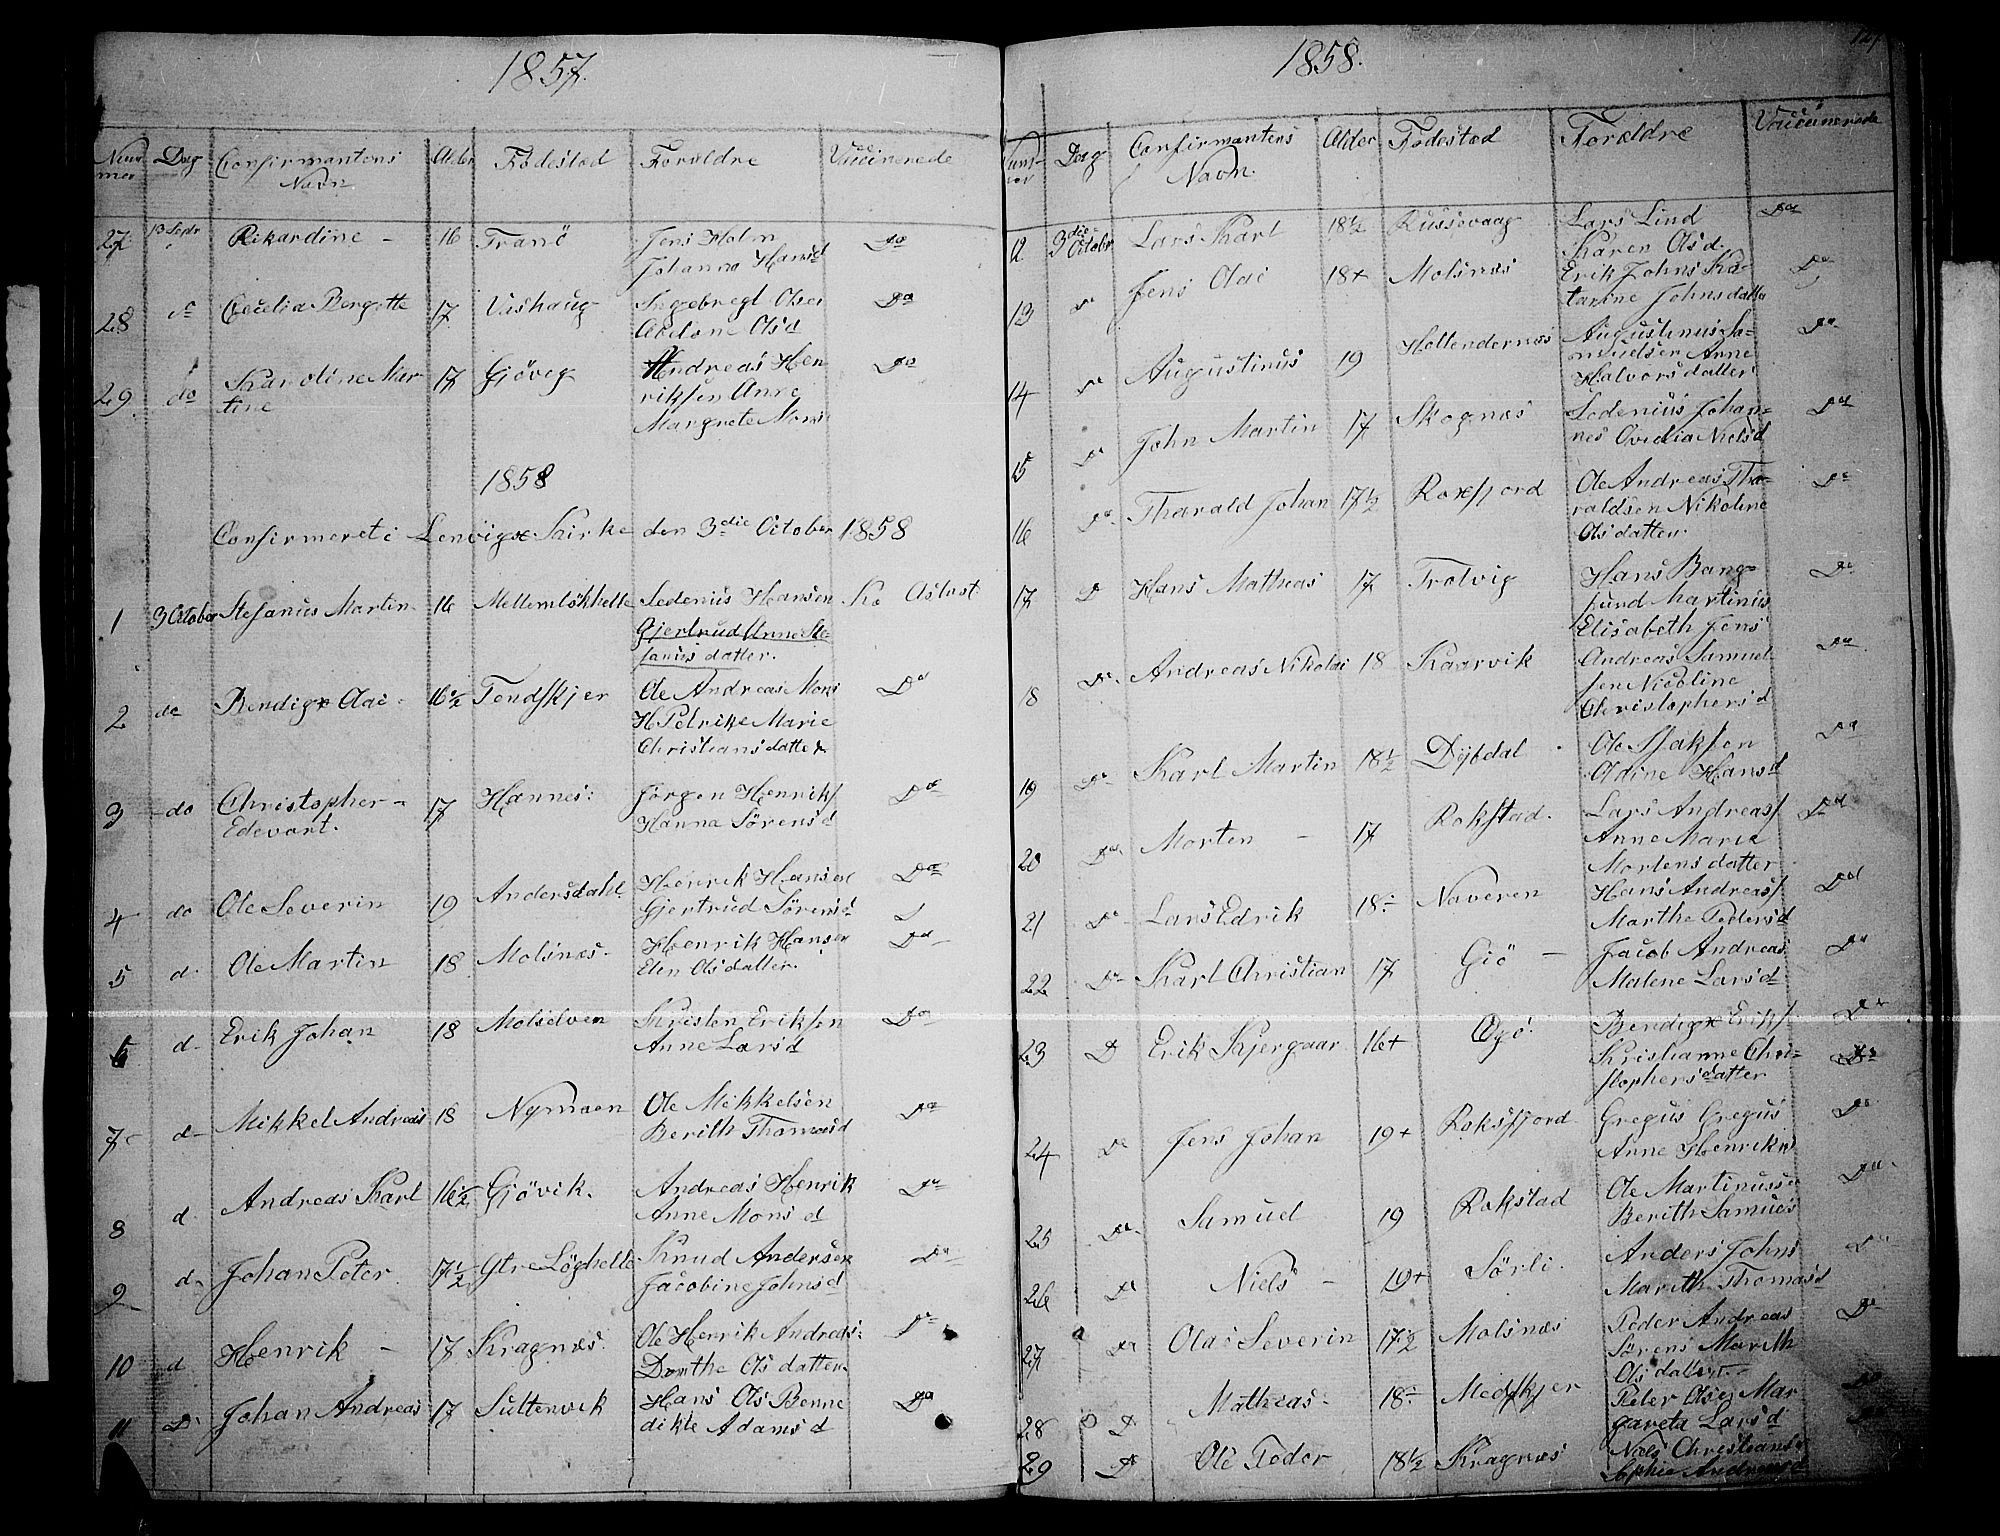 1857.
Num
mer Dag Confirmantens
Navn Alder Födested Forældre Vaccinerede
27 13 Septr Rikardine – 16 Tranö Jens Holm Do
Johanna Hansd
28 Cecelia Bergitte 17 Ingebregt Olsen Do
Olsd
29 do Karoline Mar- 17 Gjövig Andreas Hen Do
tine riksen Anne
Margrete Mons
1858
Confirmeret i Lenvigs Kirke den 3die October 1858
1 3 October Stefanus Martin 16 Sedenius Hansen
Gjertrud Anne Ste-
fanus datter.
2 do Bendigx Olai 16½ Tendskjer Ole Andreas Mons Do
H Petrike Marie
Christians datter
3 do Christopher – 17 Hannes: Jörgen Henriks Do
Edevart. Hanna Sörensd
4 do Ole Severin 19 Andersdahl Henrik Hansen Do
Gjertrud Sörensd
5 d. Ole Martin 18 Molsnæs. Henrik Hansen Do
Elen Olsdatter.
6 d. Erik Johan 18 Molselven Kristen Eriksen Do
Anne Larsd
7 d– Mikkel Andreas 18 Nymoen Ole Mikkelsen Do
Berith Thomasd
8 d. Andreas Karl 16½ Gjövik. Andreas Henrik Do
Anne Monsd
9 d. Johan Peter 17½ Knud Andersen Do
Jacobine Johnsd
10 d Henrik – 17 Kragnæs. Ole Henrik Andreas: Do
Dorthe Olsdatter
11 D Johan Andreas 17 Sultenvik Hans Ols Benne Do
dikte Adamsd
1858.
Num-
mer Dag Confirmantens
Navn. Alder Födested Forældre Vaccinerede
12 3die Octobr Lars Karl 18½ Russevaag Lars Lind Do
Karen Olsd.
13 Do Jens Olai 18+ Molsnæs Erik Johns Ka- Do
tarine Johnsdatter
14 Do Augustinus 19 Hollendernæs Augustinus Sa- Do
muelsen Anne
Halvorsdatter
15 Do John Martin 17 Skognæs Sedenius Johan- Do
nes Ovedia Nielsd
16 Do Tharald Johan 17½ Roxfjord Ole Andreas Tha- Do
raldsen Nikoline
Olsdatter.
17 D Hans Matheas 17 Trolvig Hans Bang- Do
sund Martinus
Elisabeth Jens
18 Do Andreas Nikolai 18 Kaarvik Andreas Samuel Do
sen Nicoline
Christophersd
19 Do Karl Martin 18½ Dybdal Ole Isaksen Do
Adine Hansd
20 Do Morten – 17 Rokstad. Lars Andreas Do
Anne Marie
Mortensdatter
21 Do Lars Edrik 18 Naveren Hans Andreas Do
Marthe Pedersd
22 Do Karl Christian 17 Giö – Jacob Andreas Do
Malene Larsd
23 D Erik Kjergaar 16+ Ogö. Bendigx Eriks Do
Kristianne Chri- Do
stophersdatter
24 Do Jens Johan 19+ Roksfjord Gregus Gregus Do
Anne Henrikd
25 Do Samuel 19 Rokstad Ole Martinussen Do
Berith Samuels
26 Do Niels – 19+ Sörli. Anders Johns Do
Marith Thomasd
27 Do Olai Severin 17½ Molsnæs Peder Andreas Do
Sörens Marith
Olsdatter –
28 D Matheas. 18 Medskjer Peter Olsen Mar- Do
gareta Larsd
29 Do Ole Peder 18½ Kragnæs Niels Christians Do
Sophie